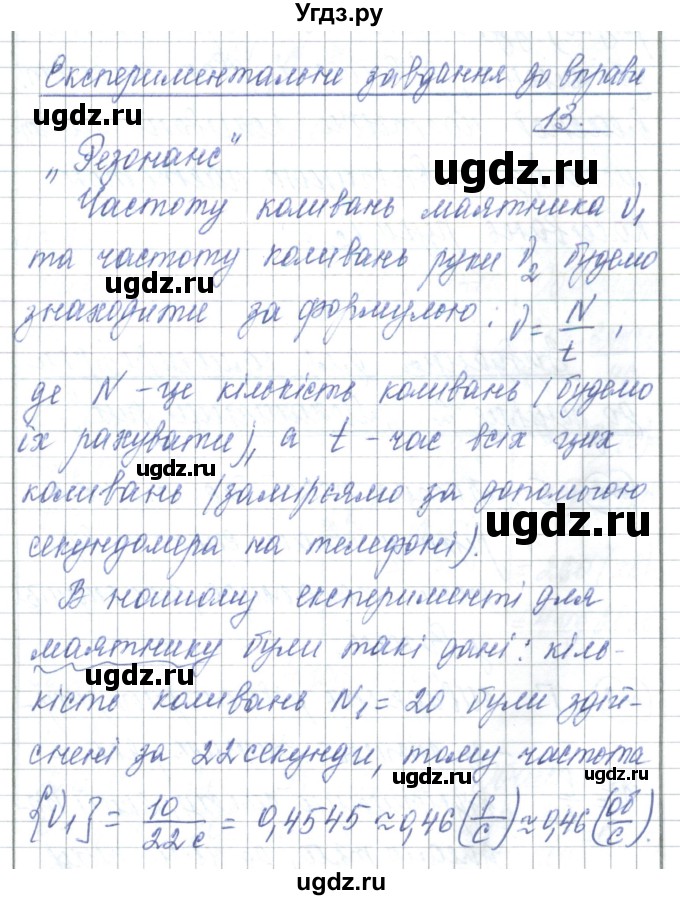 Угдз.ру
Експериментальне завдання до вправи
13.
„Резонанс"
Частоту коливань маятника ν₁
та частоту коливань руки ν₂ будемо
знаходити за формулою: ν = N/t,
де N – це кількість коливань (будемо
їх рахувати), а t – час всіх цих
коливань (заміряємо за допомогою
секундомера на телефоні).
В нашому експерименті для
маятнику були такі дані: кіль-
кість коливань N₁ = 20 були здій-
снені за 22 секунди, тому частота
{ν₁} = 10/22c = 0,4545 ≈ 0,46 (1/c) ≈ 0,46 (об/c).
ugdz.ru
ugdz.ru
ugdz.ru
ugdz.ru
ugdz.ru
ugdz.ru
ugdz.ru
ugdz.ru
ugdz.ru
ugdz.ru
ugdz.ru